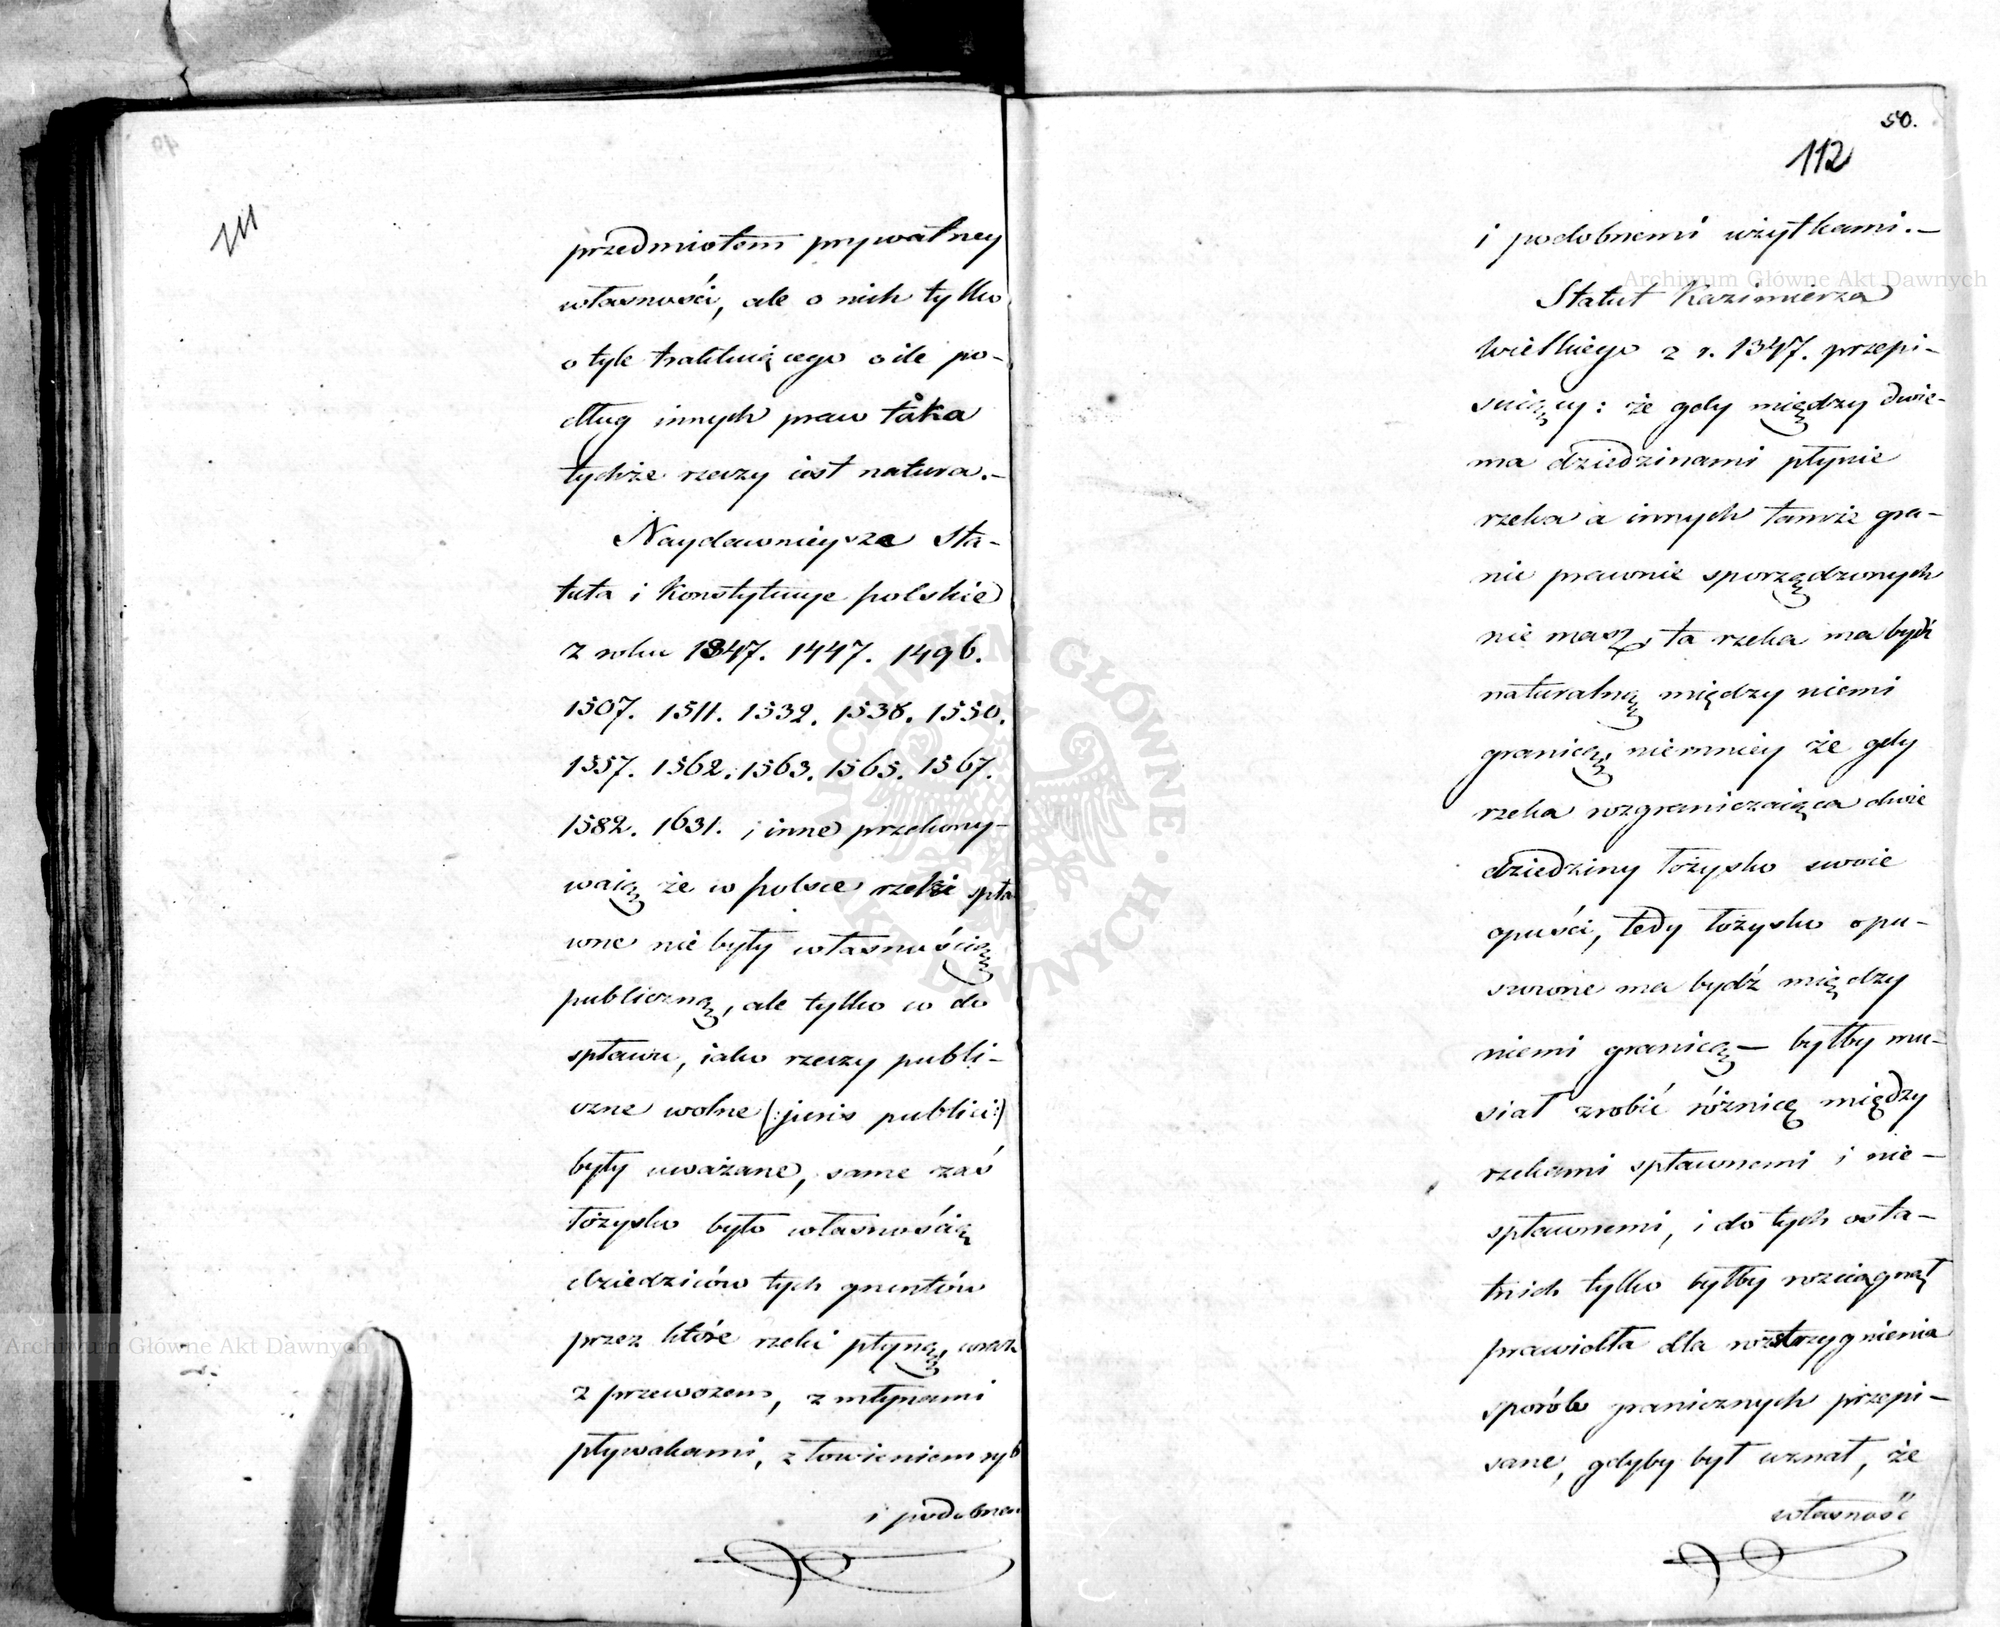 111
przedmiotem prywatney
własności, ale o nich tylko
o tyle traktuiącego o ile po-
dług innych praw táka
tychże rzeczy iest natura.-
Naydawnieysze Sta-
tuta i Konstytucye polskie
z roku 1347. 1447. 1496.
1507. 1511. 1532. 1538. 1550.
1557. 1562. 1563. 1565. 1567.
1582. 1631. i inne przekony-
waią że w polsce rzeki spła
wne nie były własnością
publiczną, ale tylko co do
spławu, iako rzeczy publi-
czne wolne (:juris publici:)
były uważane, same zaś
łożysko było własnością
dziedziców tych gruntów
przez które rzeki płyną, wraz
z przewozem, z młynami
pływakami, z łowieniem ryb
i podobnem
50.
112
i podobnemi użytkami.-
Statut Kazimierza
Wielkiego z r. 1347. przepi-
suiący: że gdy między dwie-
ma dziedzinami płynie
rzeka a innych tamże gra-
nic prawnie sporządzonych
nie masz, ta rzeka ma bydź
naturalną między niemi
granicą, niemniey że gdy
rzeka rozgraniczaiąca dwie
dziedziny łożysko swoie
opuści, tedy łożysko opu-
szczone ma bydź między
niemi granicą - byłby mu-
siał zrobić różnicę między
rzekami spławnemi i nie-
spławnemi, i do tych osta-
tnich tylko byłby rozciągnął
prawidła dla rozstrzygnienia
sporów granicznych przepi-
sane, gdyby był uznał, że
własność
Archiwum Główne Akt Dawnych
Archiwum Główne Akt Dawnych
ARCHIWUM GŁÓWNE AKT DAWNYCH